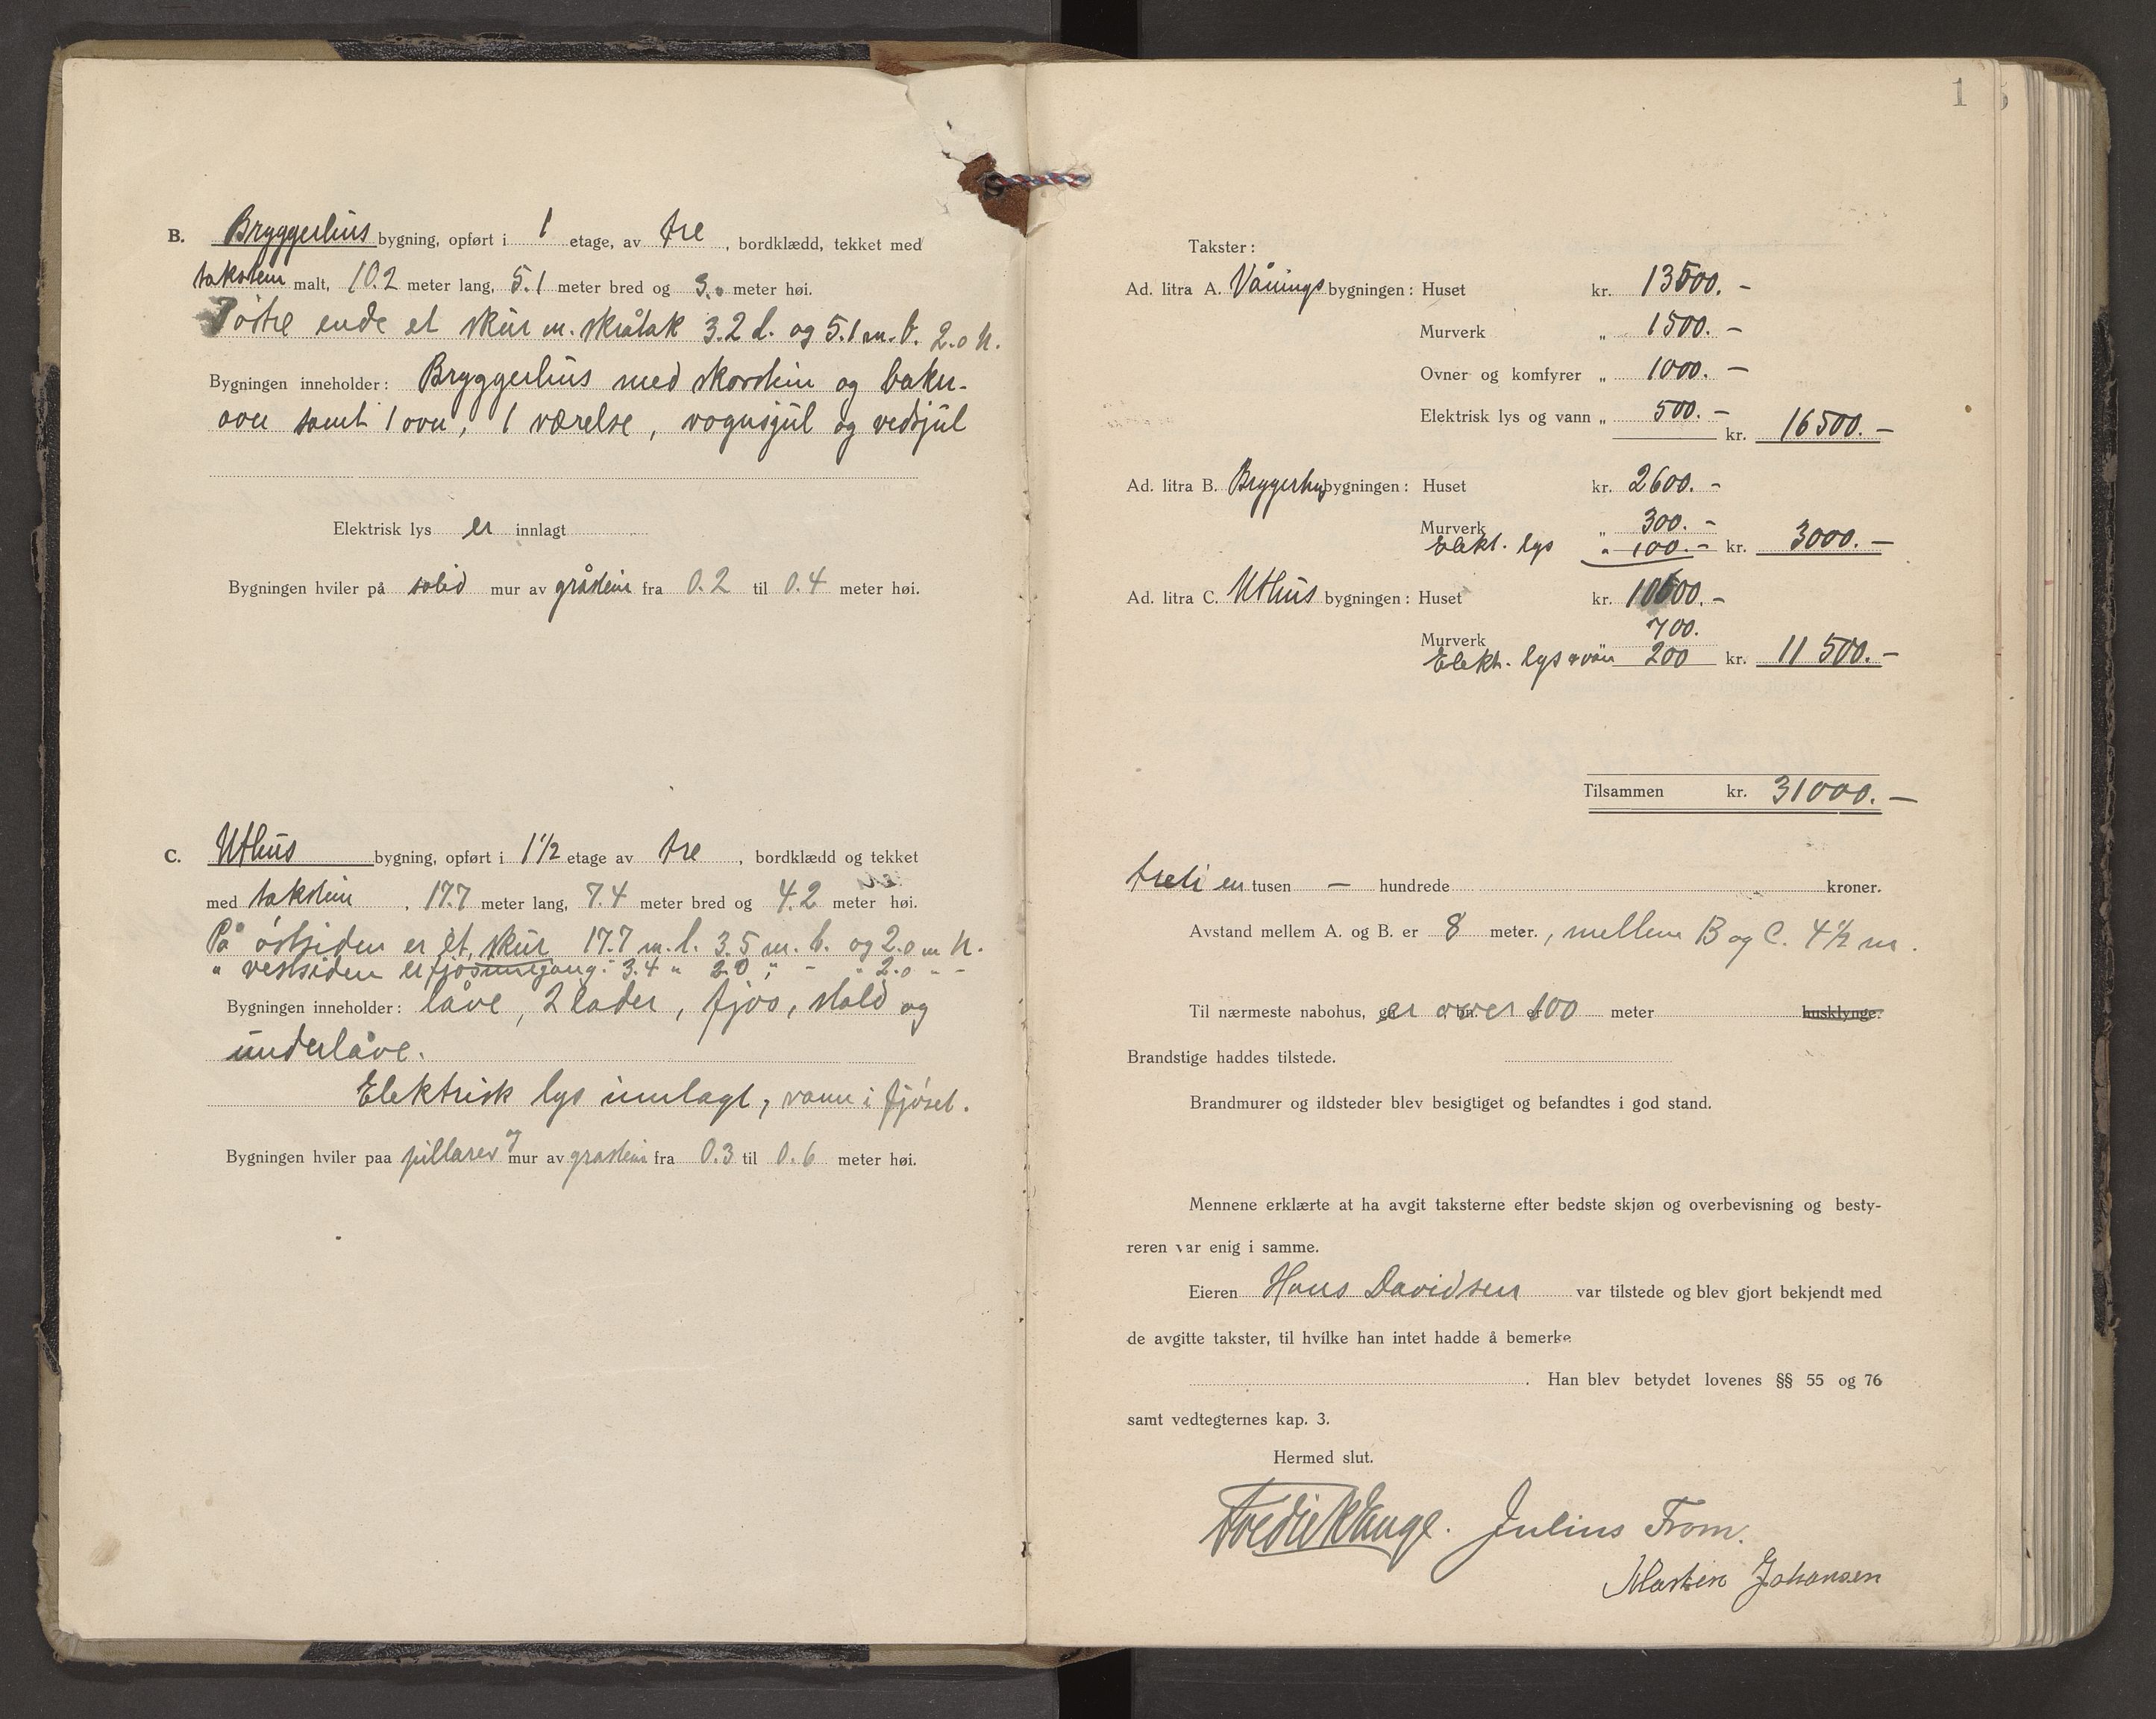 B. Bryggerhus bygning, opført i 1 etage, av tre, bordklædd, tekket med
takstein malt, 10.2 meter lang, 5.1 meter bred og 3.0 meter høi.
I östre ende et skur m. skråtak 3.2 l. og 5.1 m. b. 2.0 h.
Bygningen inneholder: Bryggerhus med skorstein og baker-
ovn samt 1 ovn, 1 værelse, vognsjul og vedsjul
Elektrisk lys er innlagt
Bygningen hviler på solid mur av gråstein fra 0.2 til 0.4 meter høi.
C. Uthus bygning, opført i 1 1/2 etage av tre, bordklædd og tekket
med takstein, 17.7 meter lang, 7.4 meter bred og 4.2 meter høi.
På östsiden er et skur 17.7 m. l. 3.5 m. b. og 2.0 m h.
" vestsiden er fjösumgang: 3.4 " 2.0 " - " 2.0 " -
Bygningen inneholder: låve, 2 lader, fjös, stald og
underlåve.
Elektrisk lys innlagt, vann i fjöset.
Bygningen hviler paa pillarer og mur av gråstein fra 0.3 til 0.6 meter høi.
1
Takster:
Ad. litra A. Vånings bygningen: Huset kr. 13500. -
Murverk " 1500. -
Ovner og komfyrer " 1000. -
Elektrisk lys og vann " 500. - kr. 16500. -
Ad. litra B. Bryggerhus bygningen: Huset kr. 2600. -
Murverk " 300. -
Elekt. lys " 100. - kr. 3000. -
Ad. litra C. Uthus bygningen: Huset kr. 10600. -
Murverk " 700.
Elekt. lys o van 200 kr. 11 500. -
Tilsammen kr. 31000. -
treti en tusen - hundrede kroner.
Avstand mellem A. og B. er 8 meter., mellem B og C. 4 1/2 m.
Til nærmeste nabohus, er over 100 meter husklynge.
Brandstige haddes tilstede.
Brandmurer og ildsteder blev besigtiget og befandtes i god stand.
Mennene erklærte at ha avgit taksterne efter bedste skjøn og overbevisning og besty-
reren var enig i samme.
Eieren Hans Davidsen var tilstede og blev gjort bekjendt med
de avgitte takster, til hvilke han intet hadde å bemerke
. Han blev betydet lovenes §§ 55 og 76
samt vedtegternes kap. 3.
Hermed slut.
Fredrik Enge. Julius From.
Martin Johansen